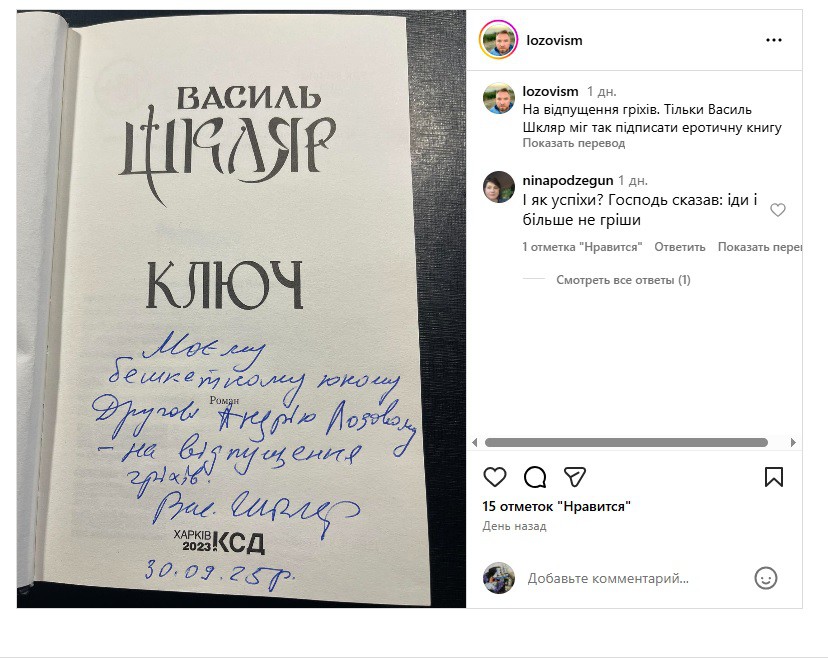 ВАСИЛЬ
ШКЛЯР
КЛЮЧ
Моєму
бешкетному юному
Роман
Другові Андрію Лозовому
– на відпущення
гріхів.
Вас. Шкляр
ХАРКІВ КСД
2023
30.09.25р.
lozovism
lozovism 1 дн.
На відпущення гріхів. Тільки Василь
Шкляр міг так підписати еротичну книгу
Показать перевод
ninapodzegun 1 дн.
І як успіхи? Господь сказав: іди і
більше не гріши
1 отметка "Нравится" Ответить Показать пере
Смотреть все ответы (1)
15 отметок "Нравится"
День назад
Добавьте комментарий...